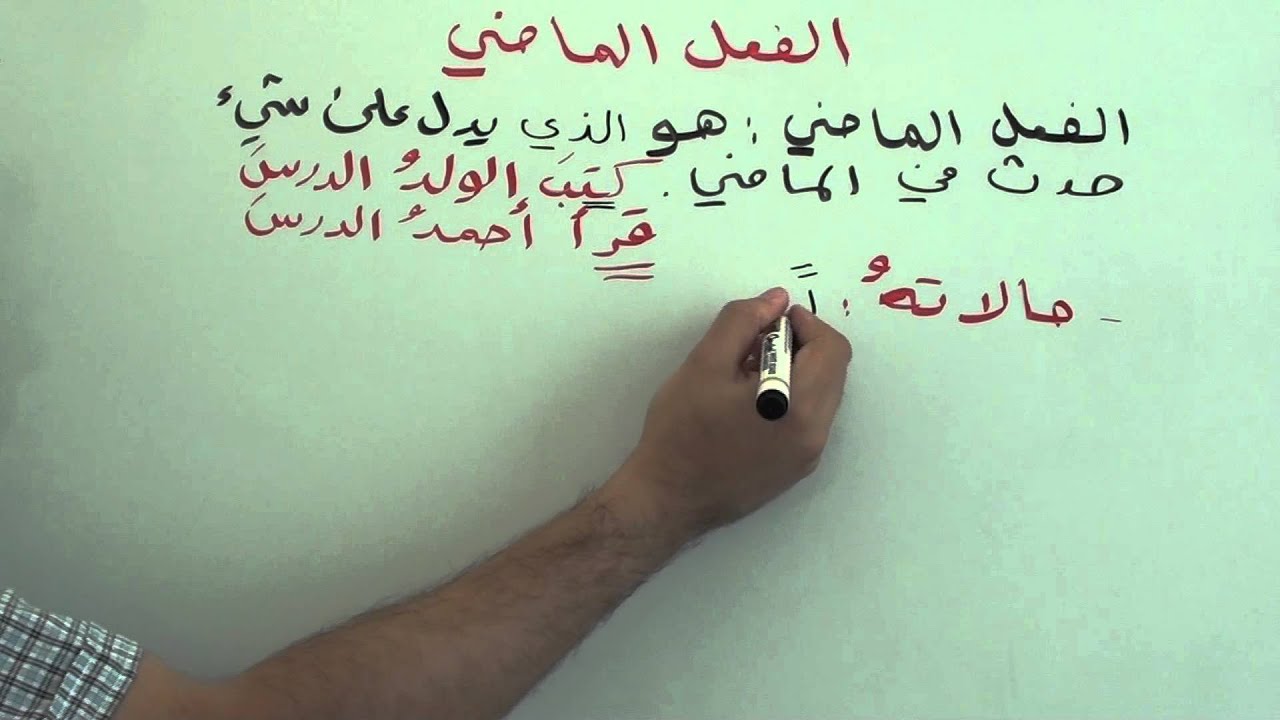 الفعل الماضي
الفعل الماضي : هو الذي يدل على شيء
حدث في الماضي . كتبَ الولدُ الدرسَ
قرأ أحمدُ الدرسَ
- حالاتهُ :